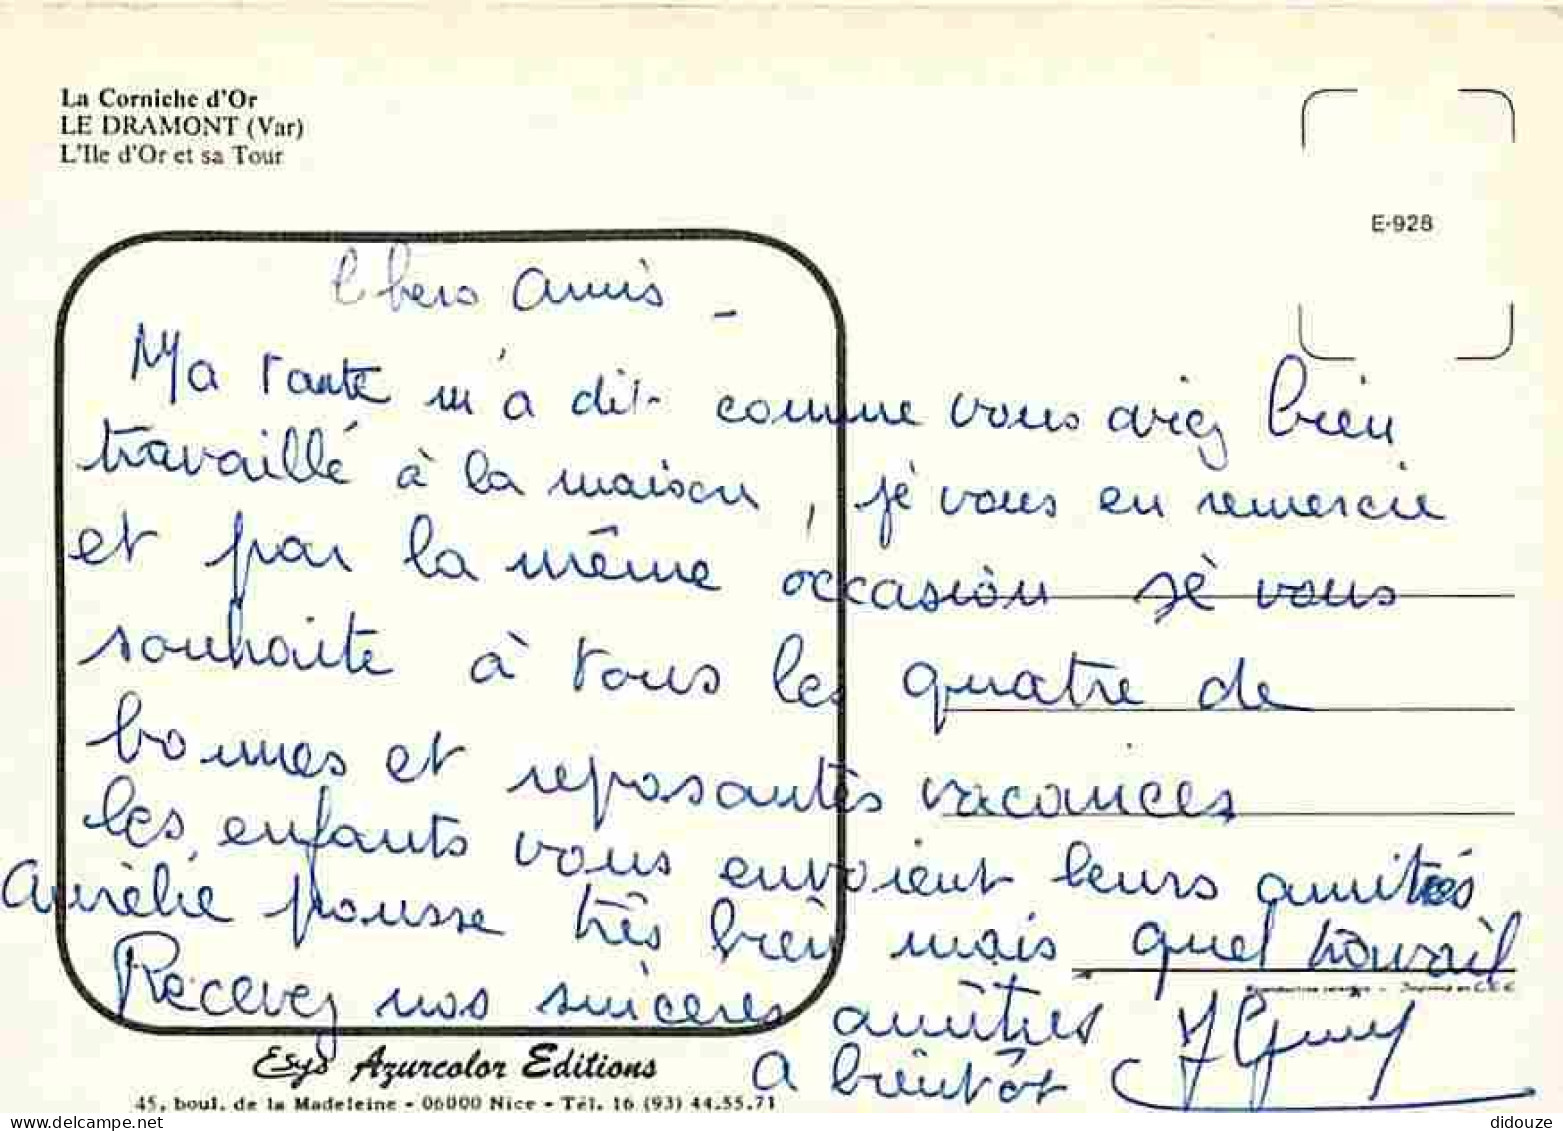 La Corniche d'Or
LE DRAMONT (Var)
L'Ile d'Or et sa Tour
E-928
Chers Amis -
Ma tante m'a dit comme vous aviez bien
travaillé à la maison, je vous en remercie
et par la même occasion je vous
souhaite à tous les quatre de
bonnes et reposantes vacances
les enfants vous envoient leurs amitiés
Aurélie pousse très bien mais quel travail
Recevez nos sincères amitiés
A bientôt
Esys Azurcolor Editions
45, boul. de la Madeleine - 06000 Nice - Tél. 16 (93) 44.55.71
delcampe.net
didouze